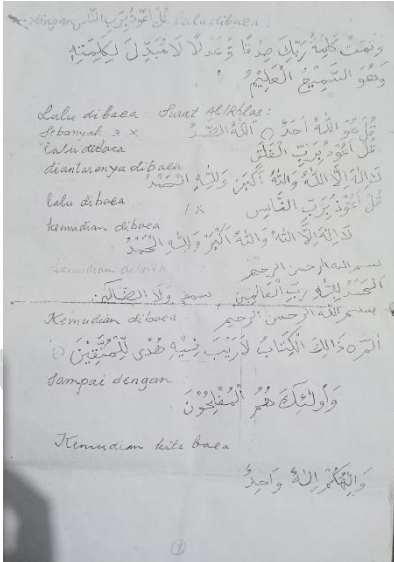 dengan قُلْ أَعُوْذُ بِرَبِّ النَّاسِ lalu dibaca :
وَتَمَّتْ كَلِمَةُ رَبِّكَ صِدْقًا وَّعَدْلًا لَا مُبَدِّلَ لِكَلِمَتِهِ
وَهُوَ السَّمِيْعُ الْعَلِيْمُ
Lalu dibaca Surat Al Ikhlas :
Sebanyak 3 x قُلْ هُوَ اللهُ أَحَدٌ ۝ اللهُ الصَّمَدُ
lalu dibaca قُلْ أَعُوْذُ بِرَبِّ الْفَلَقِ
diantaranya dibaca
لَا إِلٰهَ إِلَّا اللهُ وَاللهُ أَكْبَرُ وَلِلّٰهِ الْحَمْدُ
lalu dibaca 1 x قُلْ أَعُوْذُ بِرَبِّ النَّاسِ
kemudian dibaca
لَا إِلٰهَ إِلَّا اللهُ وَاللهُ أَكْبَرُ وَلِلّٰهِ الْحَمْدُ
kemudian dibaca بسم الله الرحمن الرحيم
الْحَمْدُ لِلّٰهِ رَبِّ الْعَالَمِيْنَ وَلَا الضَّالِّيْنَ
Kemudian dibaca بسم الله الرحمن الرحيم
الٓمّٓ ذَالِكَ الْكِتَابُ لَا رَيْبَ فِيْهِ هُدًى لِّلْمُتَّقِيْنَ ۝
Sampai dengan
وَأُولٰئِكَ هُمُ الْمُفْلِحُوْنَ
Kemudian kita baca
وَإِلٰهُكُمْ إِلٰهٌ وَاحِدٌ
1